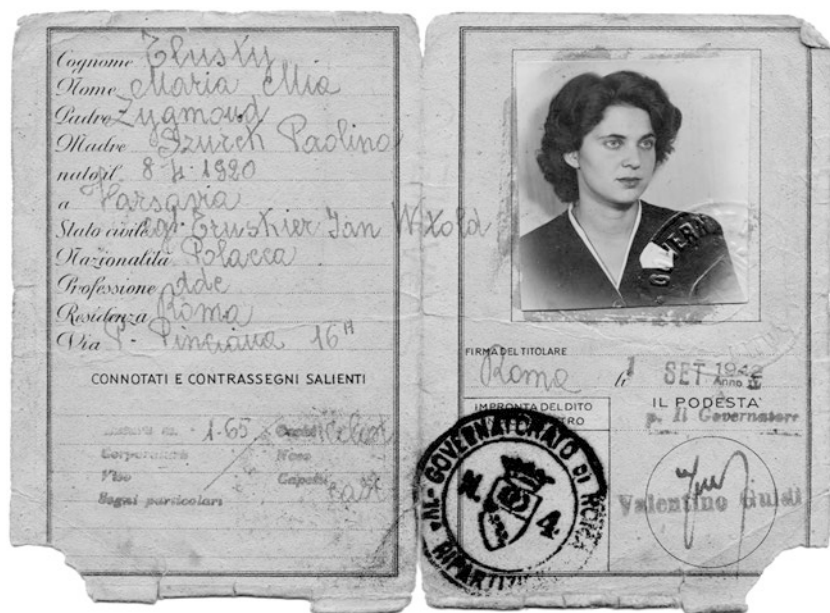 Cognome Tlusty
Nome Maria Mia
Padre Zygmoud
Madre Szurek Paolina
nato il 8-4-1920
a Varsavia
Stato civile Jan Witold
Nazionalità Polacca
Professione
Residenza Roma
Via P. Pinciana 16
CONNOTATI E CONTRASSEGNI SALIENTI
Statura m. 1-65 Occhi
Corporatura Naso
Viso Capelli cast
Segni particolari
GOVERN
FIRMA DEL TITOLARE
Roma li 1 SET 1942
Anno
IMPRONTA DEL DITO
IL PODESTA'
p. Il Governatore
GOVERNATORATO DI ROMA
N. 4
RIPARTIZI
Valentino Guidi